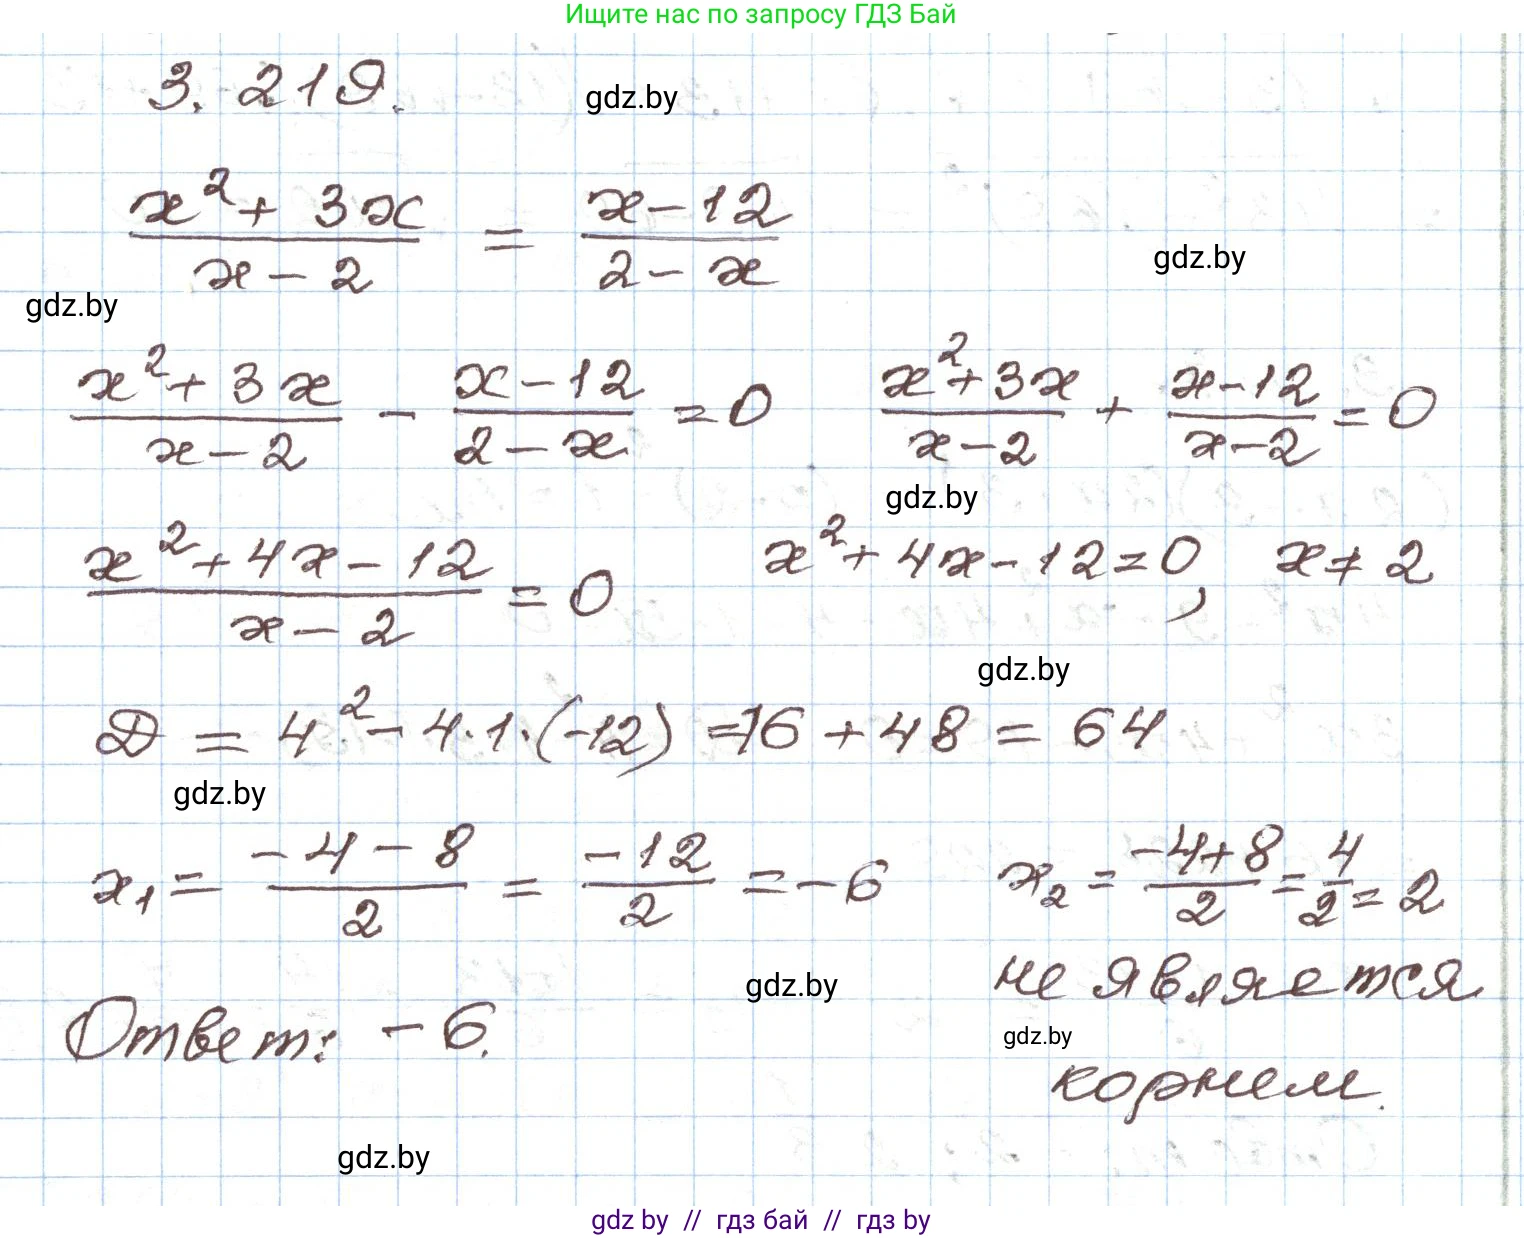 Ищите нас по запросу ГДЗ Бай
3. 219.
gdz.by
(x² + 3x)/(x - 2) = (x - 12)/(2 - x)
gdz.by
gdz.by
(x² + 3x)/(x - 2) - (x - 12)/(2 - x) = 0 (x² + 3x)/(x - 2) + (x - 12)/(x - 2) = 0
gdz.by
(x² + 4x - 12)/(x - 2) = 0 x² + 4x - 12 = 0, x ≠ 2
gdz.by
D = 4² - 4·1·(-12) = 16 + 48 = 64
gdz.by
x₁ = (-4 - 8)/2 = -12/2 = -6 x₂ = (-4 + 8)/2 = 4/2 = 2
не является
gdz.by
Ответ: -6.
gdz.by
корнем.
gdz.by
gdz by // гдз бай // гдз by